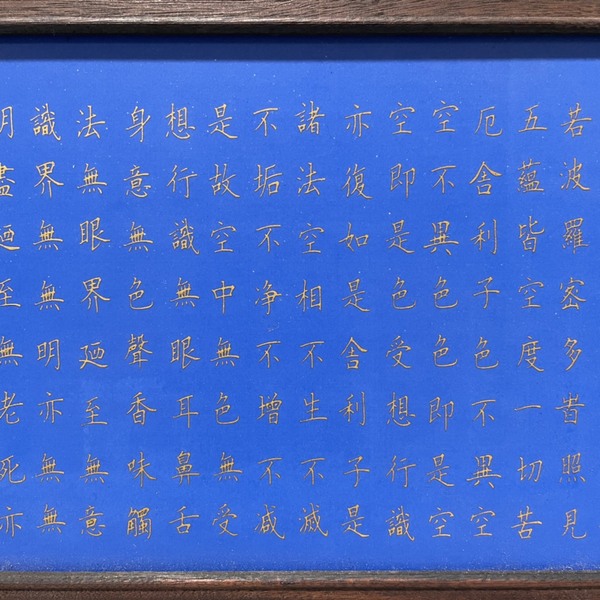 若波羅宻多旹照見
五蘊皆空度一切苦
厄舍利子色不異空
空不異色色即是空
空即是色受想行識
亦復如是舍利子是
諸法空相不生不滅
不垢不净不增不减
是故空中無色無受
想行識無眼耳鼻舌
身意無色聲香味觸
法無眼界廼至無意
識界無無明亦無無
明盡廼至無老死亦